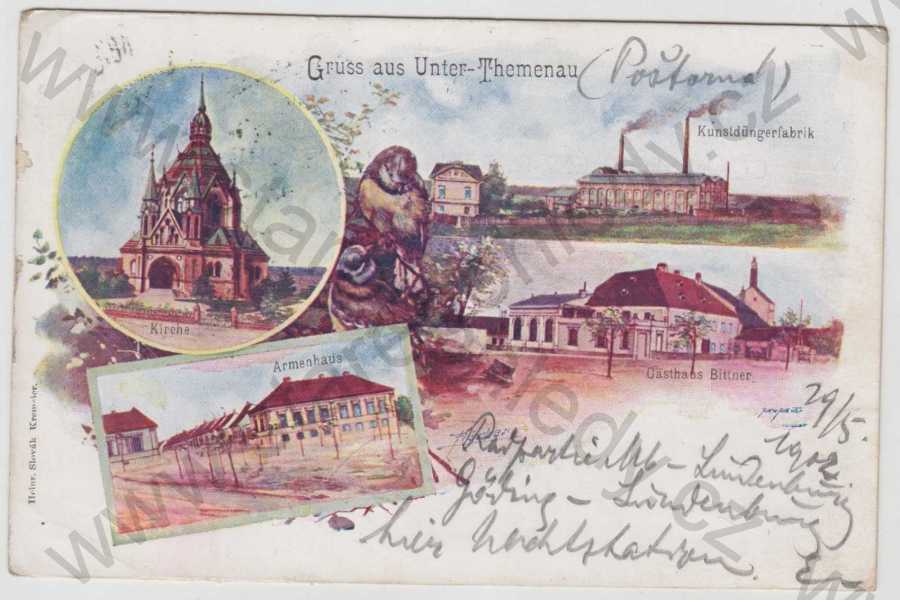 Gruss aus Unter-Themenau
(Poštorna)
Kunstdüngerfabrik
Kirche
Gasthaus Bittner
Armenhaus
29/5.
1902
Lundenburg
Göding - Lundenburg
hier Nachtstation.
Heinr. Slovák Kremsier.